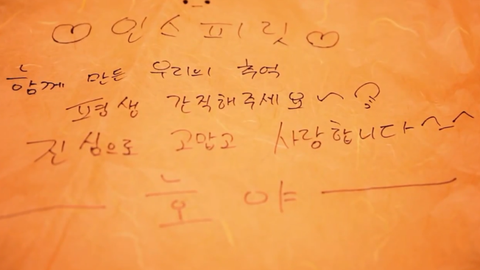 ♡ 인스피릿 ♡
함께 만든 우리의 추억
평생 간직해주세요~
진심으로 고맙고 사랑합니다^-^
호야